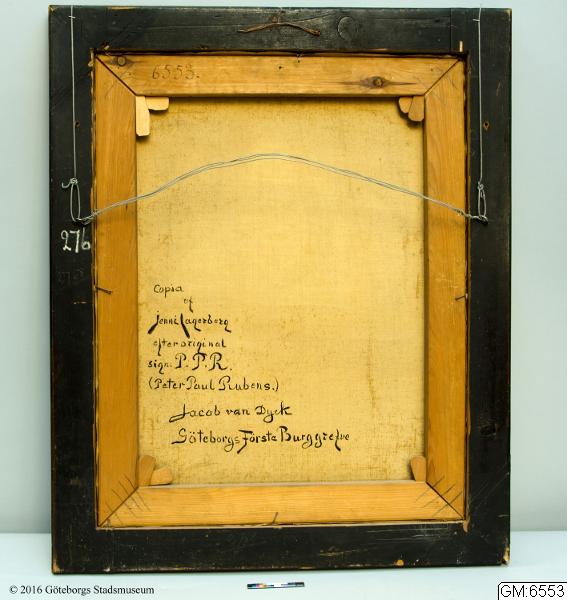 6553.
276
Copia
af
Jenni Lagerberg
efter original
sign. P. P. R.
(Peter Paul Rubens.)
Jacob van Dyck
Göteborgs Förste Burggrefve
© 2016 Göteborgs Stadsmuseum
GM:6553